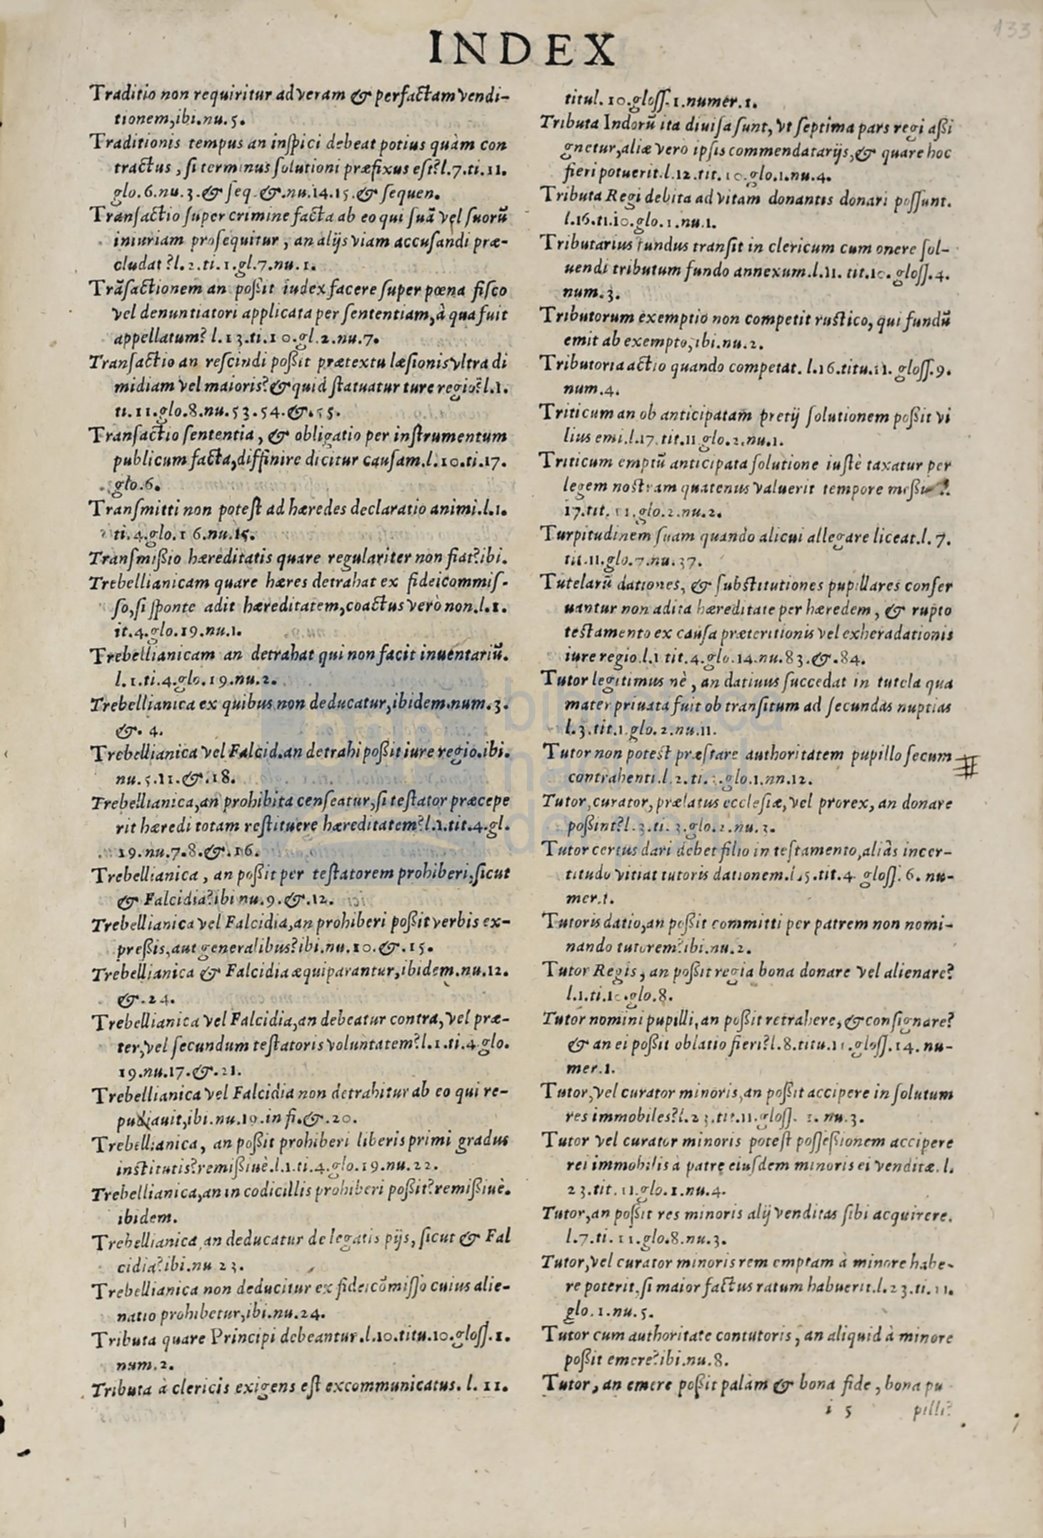 INDEX
Traditio non requiritur ad veram & perfactam vendi-
tionem, ibi.nu.5.
Traditionis tempus an inspici debeat potius quàm con
tractus, si terminus solutioni præfixus est? l.7.ti.11.
glo.6.nu.3.& seq.&.nu.14.15.& sequen.
Transactio super crimine facta ab eo qui suã vel suorũ
iniuriam prosequitur, an alijs viam accusandi præ-
cludat? l.2.ti.1.gl.7.nu.1.
Trãsactionem an possit iudex facere super pœna fisco
vel denuntiatori applicata per sententiam, à qua fuit
appellatum? l.13.ti.10.gl.2.nu.7.
Transactio an rescindi possit prætextu læsionis vltra di
midiam vel maioris? & quid statuatur iure regio? l.1.
ti.11.glo.8.nu.53.54.&.55.
Transactio sententia, & obligatio per instrumentum
publicum facta, diffinire dicitur causam.l.10.ti.17.
glo.6.
Transmitti non potest ad hæredes declaratio animi.l.1.
ti.4.glo.16.nu.15.
Transmissio hæreditatis quare regulariter non fiat? ibi.
Trebellianicam quare hæres detrahat ex fideicommis-
so, si sponte adit hæreditatem, coactus verò non.l.1.
it.4.glo.19.nu.1.
Trebellianicam an detrahat qui non facit inuentariũ.
l.1.ti.4.glo.19.nu.2.
Trebellianica ex quibus non deducatur, ibidem.num.3.
&.4.
Trebellianica vel Falcid.an detrahi possit iure regio.ibi.
nu.5.11.&.18.
Trebellianica, an prohibita censeatur, si testator præcepe
rit hæredi totam restituere hæreditatem? l.1.tit.4.gl.
19.nu.7.8.&.16.
Trebellianica, an possit per testatorem prohiberi, sicut
& Falcidia? ibi nu.9.&.12.
Trebellianica vel Falcidia, an prohiberi possit verbis ex-
pressis, aut generalibus? ibi.nu.10.&.15.
Trebellianica & Falcidia æquiparantur, ibidem.nu.12.
&.24.
Trebellianica vel Falcidia, an debeatur contra, vel præ-
ter, vel secundum testatoris voluntatem? l.1.ti.4.glo.
19.nu.17.&.21.
Trebellianica vel Falcidia non detrahitur ab eo qui re-
pudiauit, ibi.nu.19.in fi.&.20.
Trebellianica, an possit prohiberi liberis primi gradus
institutis? remissiuè.l.1.ti.4.glo.19.nu.22.
Trebellianica, an in codicillis prohiberi possit? remissiuè.
ibidem.
Trebellianica an deducatur de legatis pijs, sicut & Fal
cidia? ibi.nu 23.
Trebellianica non deducitur ex fideicõmisso cuius alie-
natio prohibetur, ibi.nu.24.
Tributa quare Principi debeantur.l.10.titu.10.gloss.1.
num.2.
Tributa à clericis exigens est excommunicatus. l.11.
titul.10.gloss.1.numer.1.
Tributa Indorũ ita diuisa sunt, vt septima pars regi assi
gnetur, aliæ vero ipsis commendatarijs, & quare hoc
fieri potuerit.l.12.tit.10.glo.1.nu.4.
Tributa Regi debita ad vitam donantis donari possunt.
l.16.ti.10.glo.1.nu.1.
Tributarius fundus transit in clericum cum onere sol-
uendi tributum fundo annexum.l.11.tit.10.gloss.4.
num.3.
Tributorum exemptio non competit rustico, qui fundũ
emit ab exempto, ibi.nu.2.
Tributoria actio quando competat. l.16.titu.11.gloss.9.
num.4.
Triticum an ob anticipatam pretij solutionem possit vi
lius emi.l.17.tit.11.glo.2.nu.1.
Triticum emptũ anticipata solutione iustè taxatur per
legem nostram quatenus valuerit tempore
17.tit.11.glo.2.nu.2.
Turpitudinem suam quando alicui allegare liceat.l.7.
tit.11.glo.7.nu.37.
Tutelarũ dationes, & substitutiones pupillares confer
uantur non adita hæreditate per hæredem, & rupto
testamento ex causa præteritionis vel exheradationis
iure regio.l.1 tit.4.glo.14.nu.83.&.84.
Tutor legitimus nè, an datiuus succedat in tutela qua
mater priuata fuit ob transitum ad secundas nuptias
l.3.tit.1.glo.2.nu.11.
Tutor non potest præstare authoritatem pupillo secum
contrahenti.l.2.ti. .glo.1.nn.12.
Tutor, curator, prælatus ecclesiæ, vel prorex, an donare
possint? l.3.ti.3.glo.2.nu.3.
Tutor certus dari debet filio in testamento, aliàs incer-
titudo vitiat tutoris dationem.l.5.tit.4 gloss.6. nu-
mer.1.
Tutoris datio, an possit committi per patrem non nomi-
nando tutorem? ibi.nu.2.
Tutor Regis, an possit regia bona donare vel alienare?
l.1.ti.10.glo.8.
Tutor nomini pupilli, an possit retrahere, & consignare?
& an ei possit oblatio fieri? l.8.titu.11.gloss.14. nu-
mer.1.
Tutor, vel curator minoris, an possit accipere in solutum
res immobiles? l.23.tit.11.gloss. 1. nu.3.
Tutor vel curator minoris potest possessionem accipere
rei immobilis à patre eiusdem minoris ei venditæ. l.
23.tit.11.glo.1.nu.4.
Tutor, an possit res minoris alij venditas sibi acquirere.
l.7.ti.11.glo.8.nu.3.
Tutor, vel curator minoris rem emptam à minore habe-
re poterit, si maior factus ratum habuerit.l.23.ti.11.
glo.1.nu.5.
Tutor cum authoritate contutoris, an aliquid à minore
possit emere? ibi.nu.8.
Tutor, an emere possit palàm & bona fide, bona pu
i 5 pilli?
133